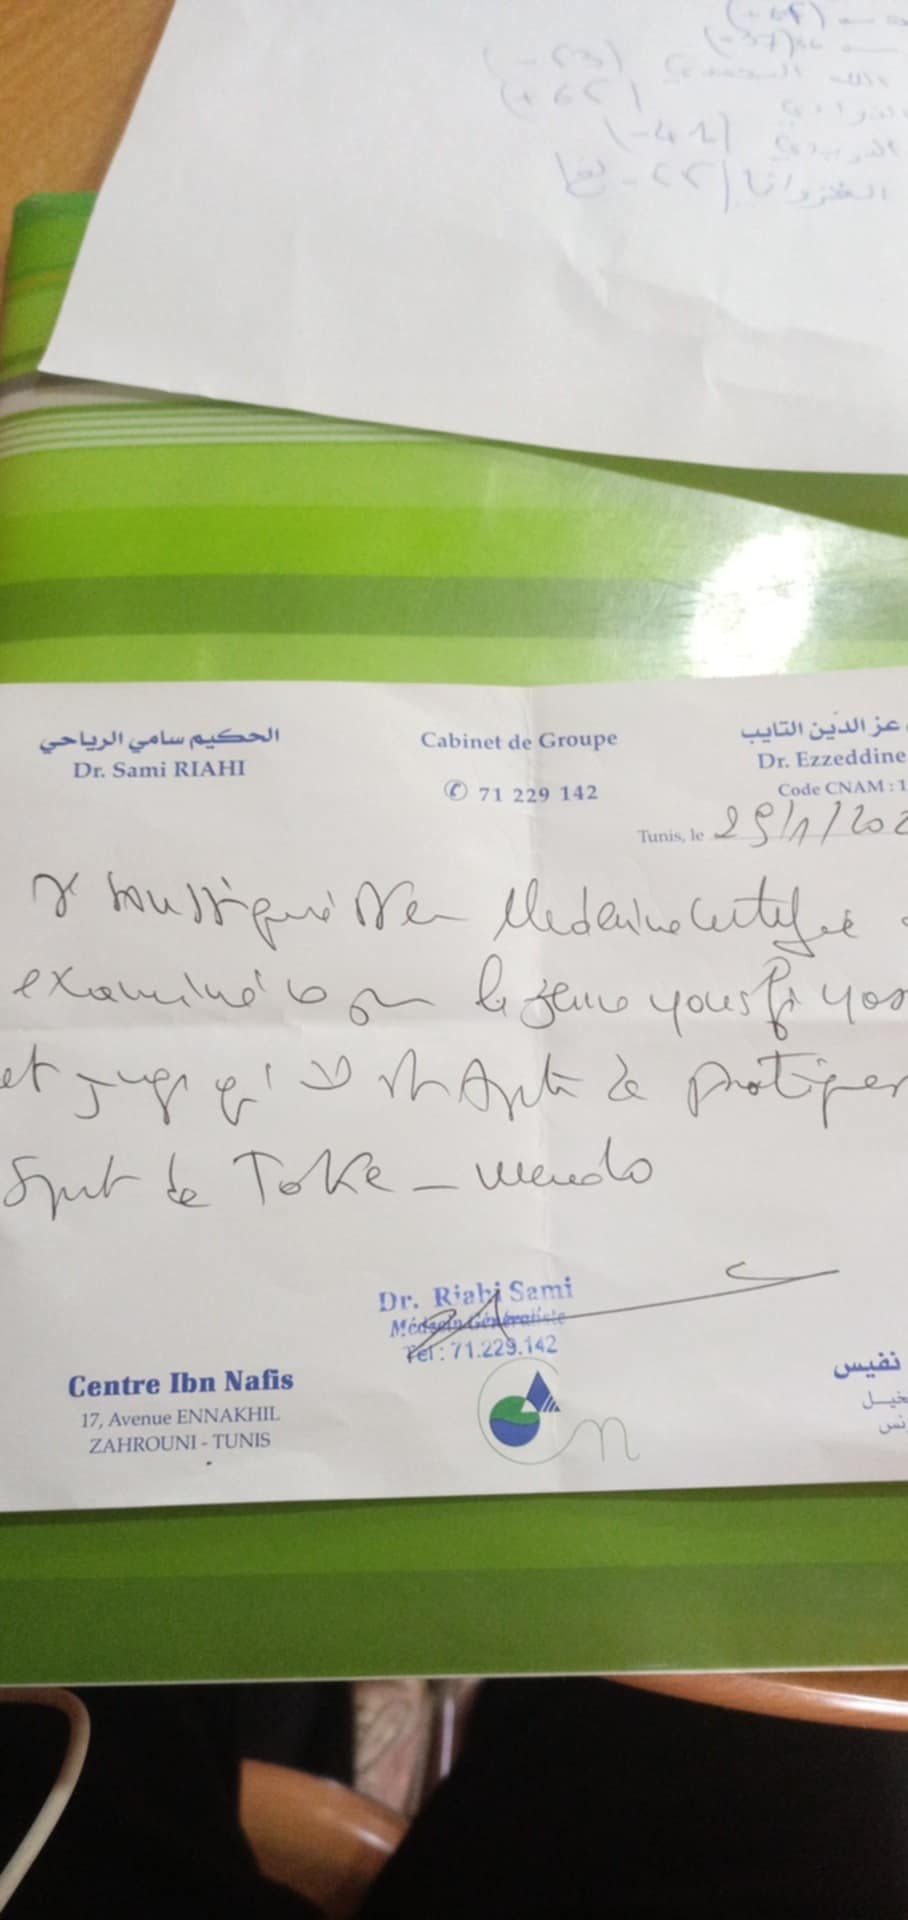 (+67)
(-37)
(-53)
(+65)
(-41)
الحكيم سامي الرياحي
Dr. Sami RIAHI
Cabinet de Groupe
✆ 71 229 142
عز الدين التايب
Dr. Ezzeddine
Code CNAM : 1
Tunis, le 29/1/202
Je soussigné Dr en Médecine certifie
examiné ce jour le jeune yousfi
et juge qu'il est Apte de pratiquer
Sport de Toke - wendo
Dr. Riahi Sami
Médecin Généraliste
Tél : 71.229.142
Centre Ibn Nafis
17, Avenue ENNAKHIL
ZAHROUNI - TUNIS
نفيس
n